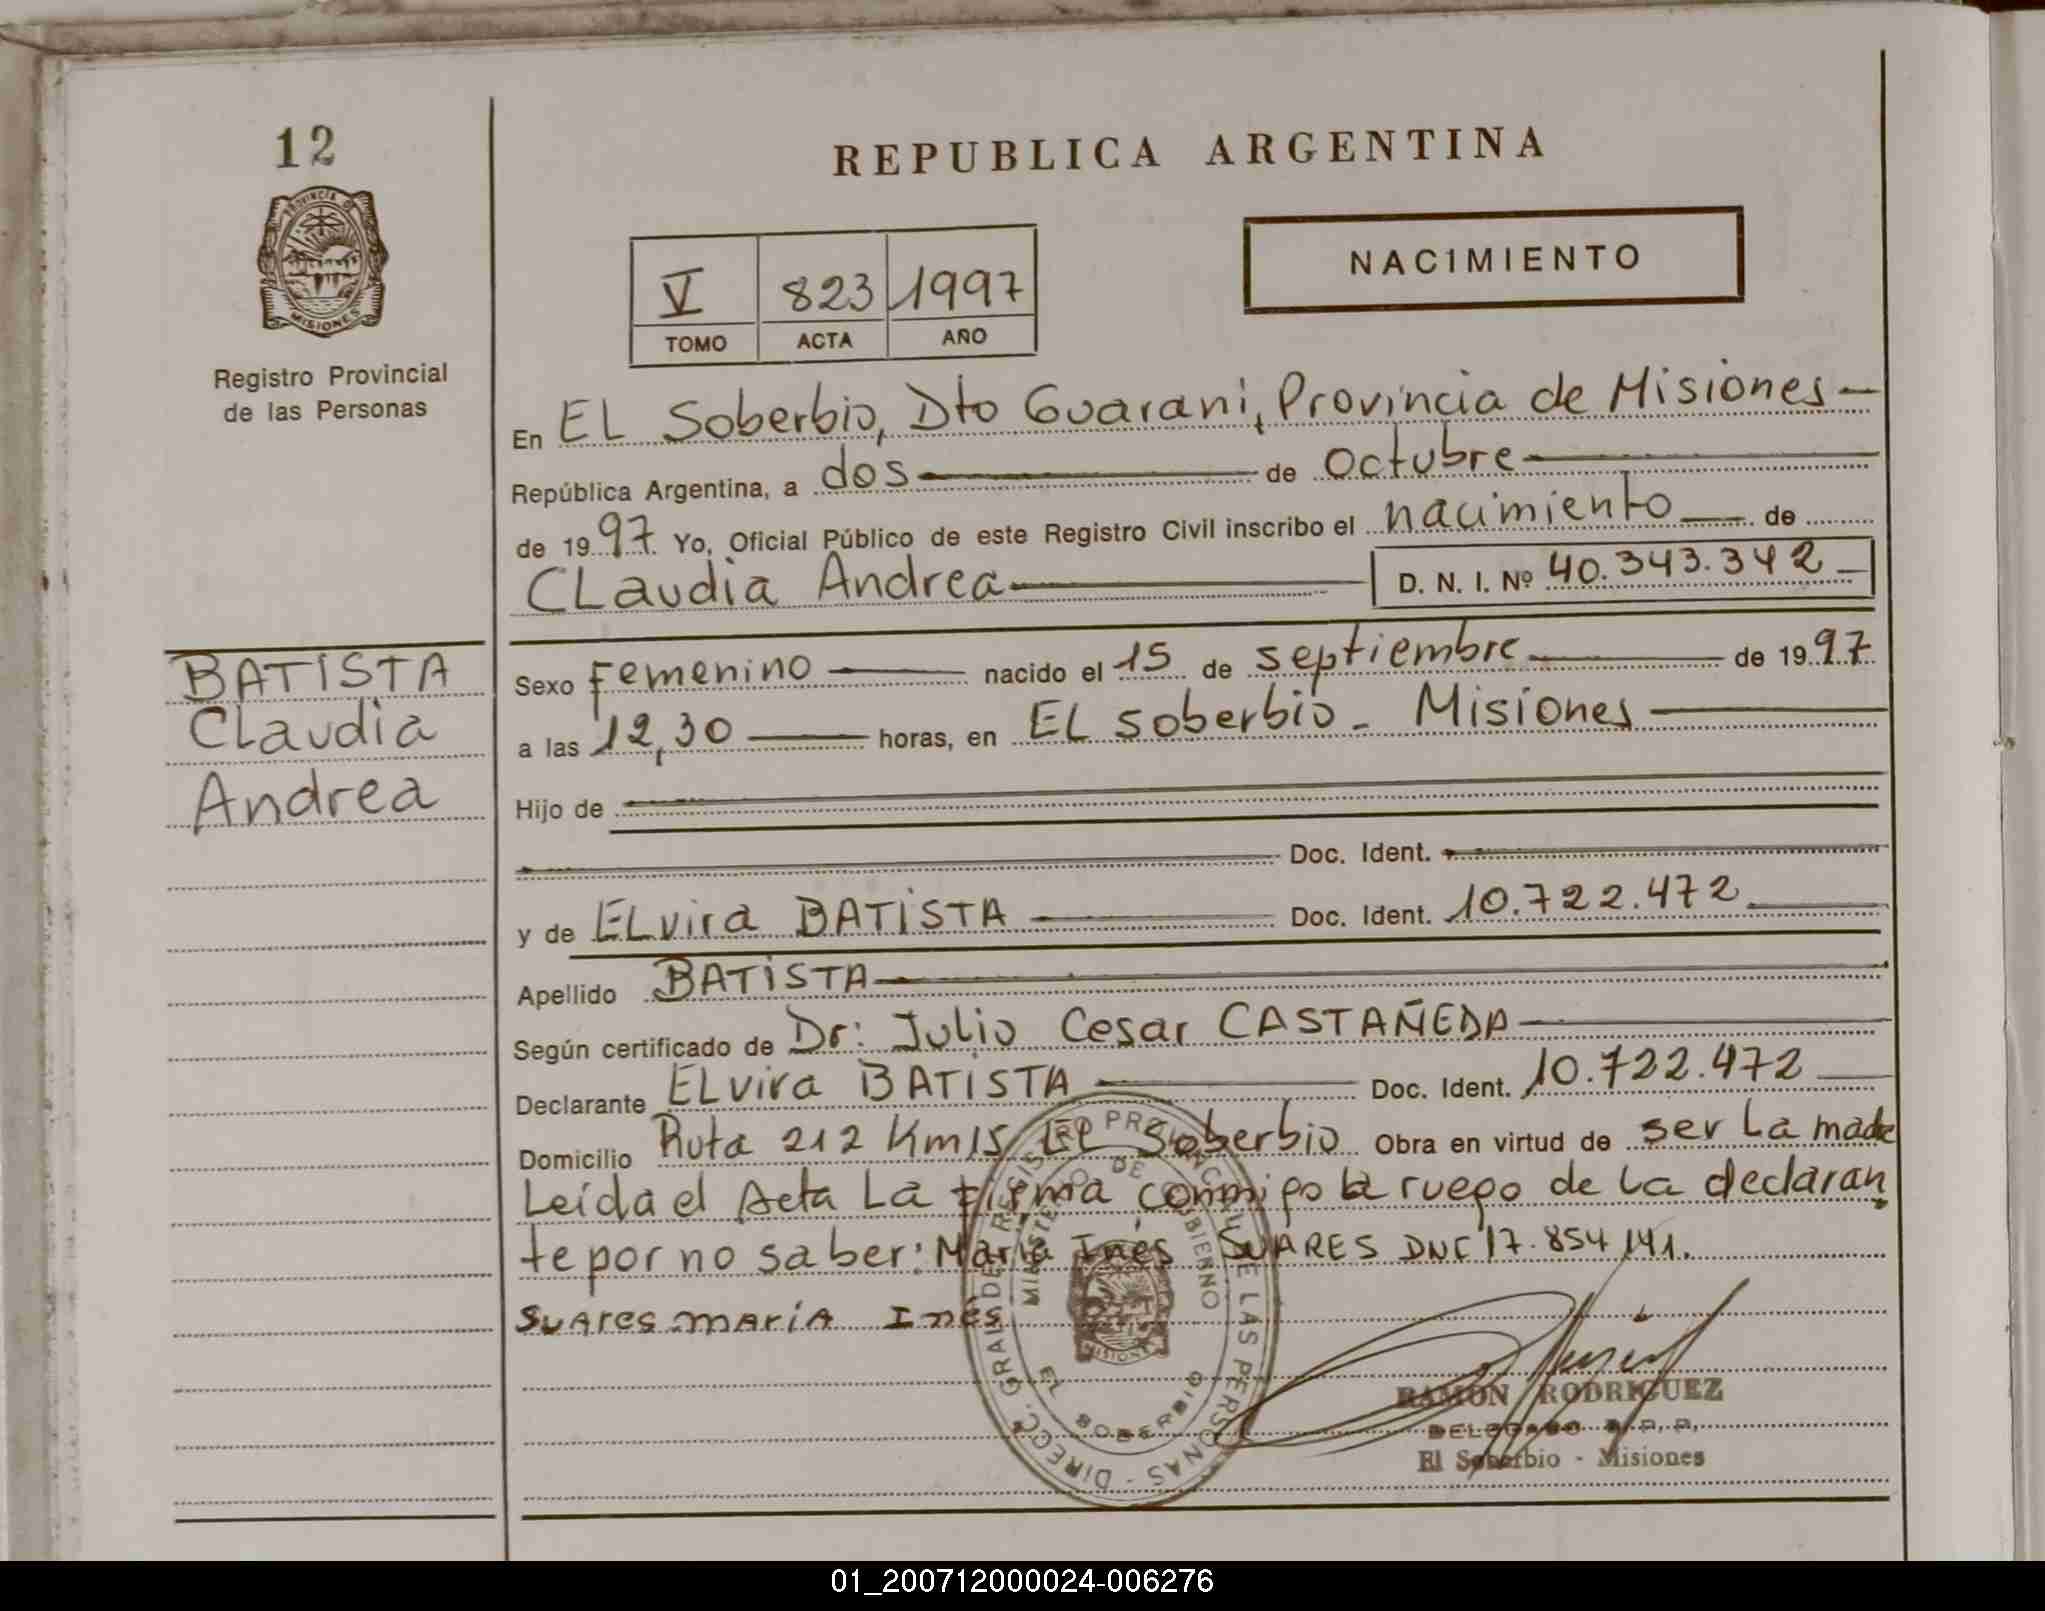 12
PROVINCIA DE
MISIONES
Registro Provincial
de las Personas
BATISTA
Claudia
Andrea
REPUBLICA ARGENTINA
V 823 1997
TOMO ACTA AÑO
NACIMIENTO
En EL Soberbio, Dto Guarani, Provincia de Misiones
República Argentina, a dos de Octubre
de 1997 Yo, Oficial Público de este Registro Civil inscribo el nacimiento de
CLaudia Andrea D. N. I. Nº 40.343.342
Sexo Femenino nacido el 15 de septiembre de 1997
a las 12,30 horas, en EL Soberbio - Misiones
Hijo de
Doc. Ident.
y de ELvira BATISTA Doc. Ident. 10.722.472
Apellido BATISTA
Según certificado de Dr: Julio Cesar CASTAÑEDA
Declarante ELvira BATISTA Doc. Ident. 10.722.472
Domicilio Ruta 212 Km15 EL Soberbio Obra en virtud de ser La madre
Leída el Acta La firma conmigo a ruego de La declaran
te por no saber: María Inés SUARES DNI 17.854.141.
Suares María Inés
DIRECC. GRAL. DE REGISTRO PROVINCIAL DE LAS PERSONAS
MINISTERIO DE GOBIERNO
MISIONES
EL SOBERBIO
RAMON RODRIGUEZ
DELEGADO R. P. P.
El Soberbio - Misiones
01_200712000024-006276